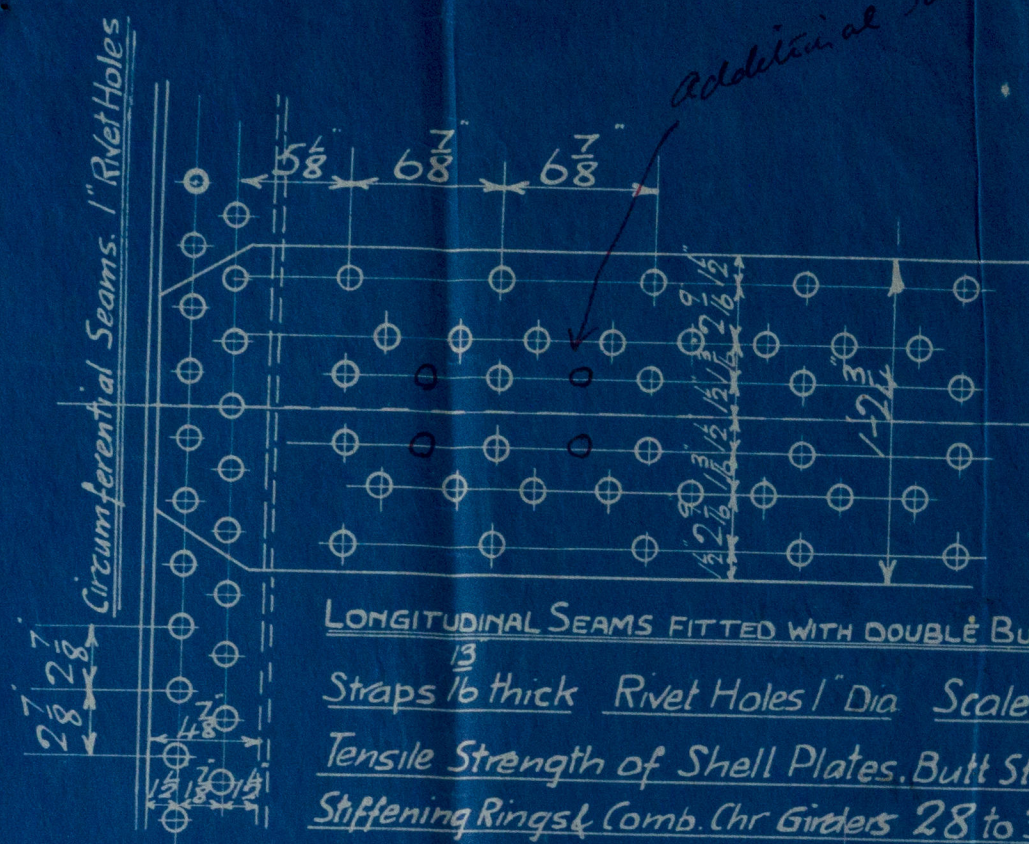 Circumferential Seams. 1" Rivet Holes
Additional
5 1/8" 6 7/8" 6 7/8"
1 1/2" 2 9/16 1 13/16 1 1/2" 1 1/2" 1 13/16 2 9/16 1 1/2"
1'-2 3/4"
2 7/8" 2 7/8"
4 7/8"
1 1/2" 1 7/8" 1 1/2"
LONGITUDINAL SEAMS FITTED WITH DOUBLE BU
Straps 13/16 thick Rivet Holes 1" Dia Scale
Tensile Strength of Shell Plates. Butt St
Stiffening Rings & Comb. Chr Girders 28 to